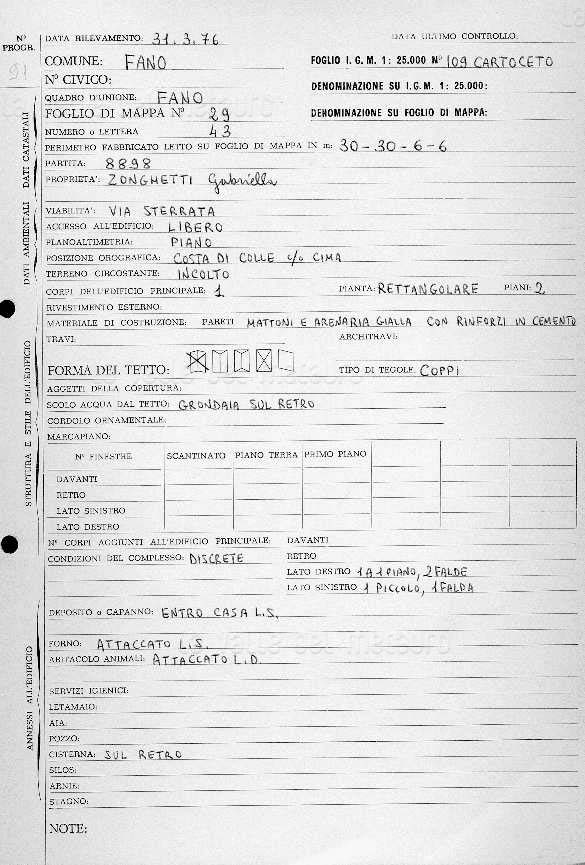 Nº PROGR.
91
DATA RILEVAMENTO: 31.3.76
DATA ULTIMO CONTROLLO:
COMUNE: FANO
FOGLIO I. G. M. 1: 25.000 Nº 109 CARTOCETO
Nº CIVICO:
DENOMINAZIONE SU I.G.M. 1: 25.000:
QUADRO D'UNIONE: FANO
FOGLIO DI MAPPA Nº 29
DENOMINAZIONE SU FOGLIO DI MAPPA:
NUMERO o LETTERA 43
PERIMETRO FABBRICATO LETTO SU FOGLIO DI MAPPA IN m: 30-30-6-6
PARTITA: 8898
PROPRIETA': ZONGHETTI Gabriella
DATI CATASTALI
VIABILITA': VIA STERRATA
ACCESSO ALL'EDIFICIO: LIBERO
PLANOALTIMETRIA: PIANO
POSIZIONE OROGRAFICA: COSTA DI COLLE c/o CIMA
TERRENO CIRCOSTANTE: INCOLTO
DATI AMBIENTALI
CORPI DELL'EDIFICIO PRINCIPALE: 1
PIANTA: RETTANGOLARE
PIANI: 2
RIVESTIMENTO ESTERNO:
MATERIALE DI COSTRUZIONE: PARETI MATTONI E ARENARIA GIALLA CON RINFORZI IN CEMENTO
TRAVI:
ARCHITRAVI:
FORMA DEL TETTO:
TIPO DI TEGOLE: COPPI
AGGETTI DELLA COPERTURA:
SCOLO ACQUA DAL TETTO: GRONDAIA SUL RETRO
CORDOLO ORNAMENTALE:
MARCAPIANO:
Nº FINESTRE SCANTINATO PIANO TERRA PRIMO PIANO
DAVANTI
RETRO
LATO SINISTRO
LATO DESTRO
STRUTTURA E STILE DELL'EDIFICIO
Nº CORPI AGGIUNTI ALL'EDIFICIO PRINCIPALE: DAVANTI
CONDIZIONI DEL COMPLESSO: DISCRETE
RETRO
LATO DESTRO 1 A 1 PIANO, 2 FALDE
LATO SINISTRO 1 PICCOLO, 1 FALDA
DEPOSITO o CAPANNO: ENTRO CASA L.S.
FORNO: ATTACCATO L.S.
ABITACOLO ANIMALI: ATTACCATO L.D.
SERVIZI IGIENICI:
LETAMAIO:
AIA:
POZZO:
CISTERNA: SUL RETRO
SILOS:
ARNIE:
STAGNO:
ANNESSI ALL'EDIFICIO
NOTE: